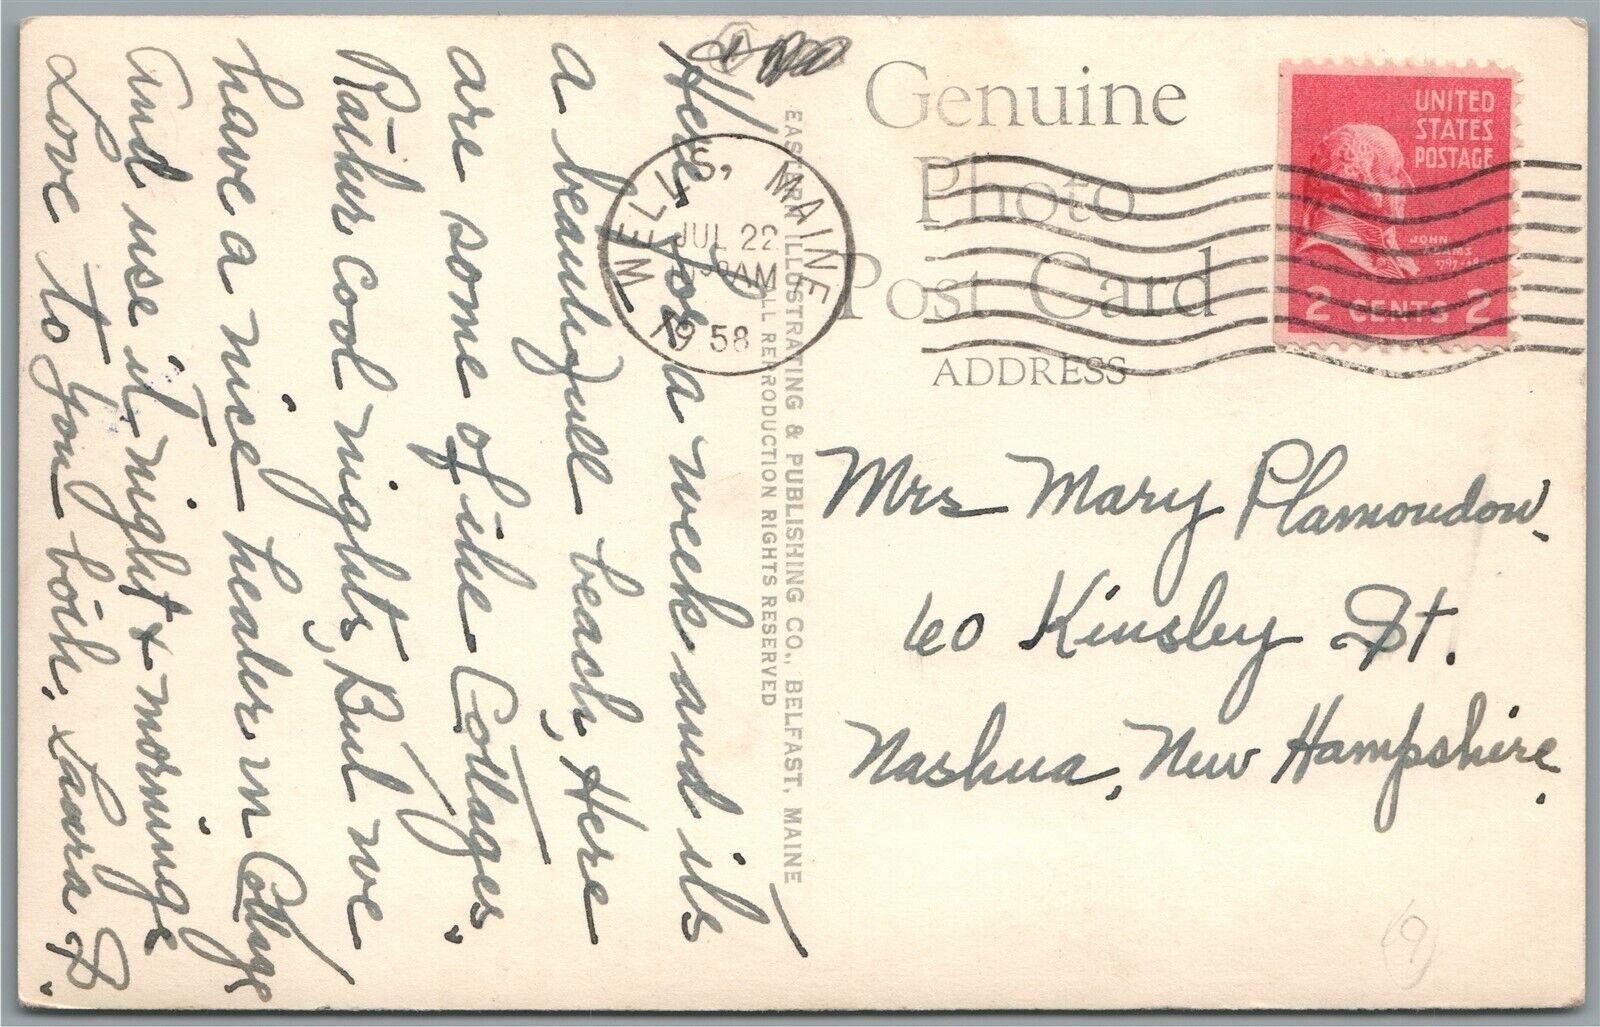 Here for a week and its
a beautifull beach, Here
are some of the Cottages.
Rather Cool nights, But we
have a nice heater in Cottage
and use it night & mornings
Love to you both, Laura P.
WELLS, MAINE
JUL 22
AM
1958
EASTERN ILLUSTRATING & PUBLISHING CO., BELFAST, MAINE
ALL REPRODUCTION RIGHTS RESERVED
Genuine
Photo
Post Card
ADDRESS
UNITED
STATES
POSTAGE
JOHN
ADAMS
2 CENTS 2
Mrs Mary Plamondon,
60 Kinsley St.
Nashua, New Hampshire.
(9)